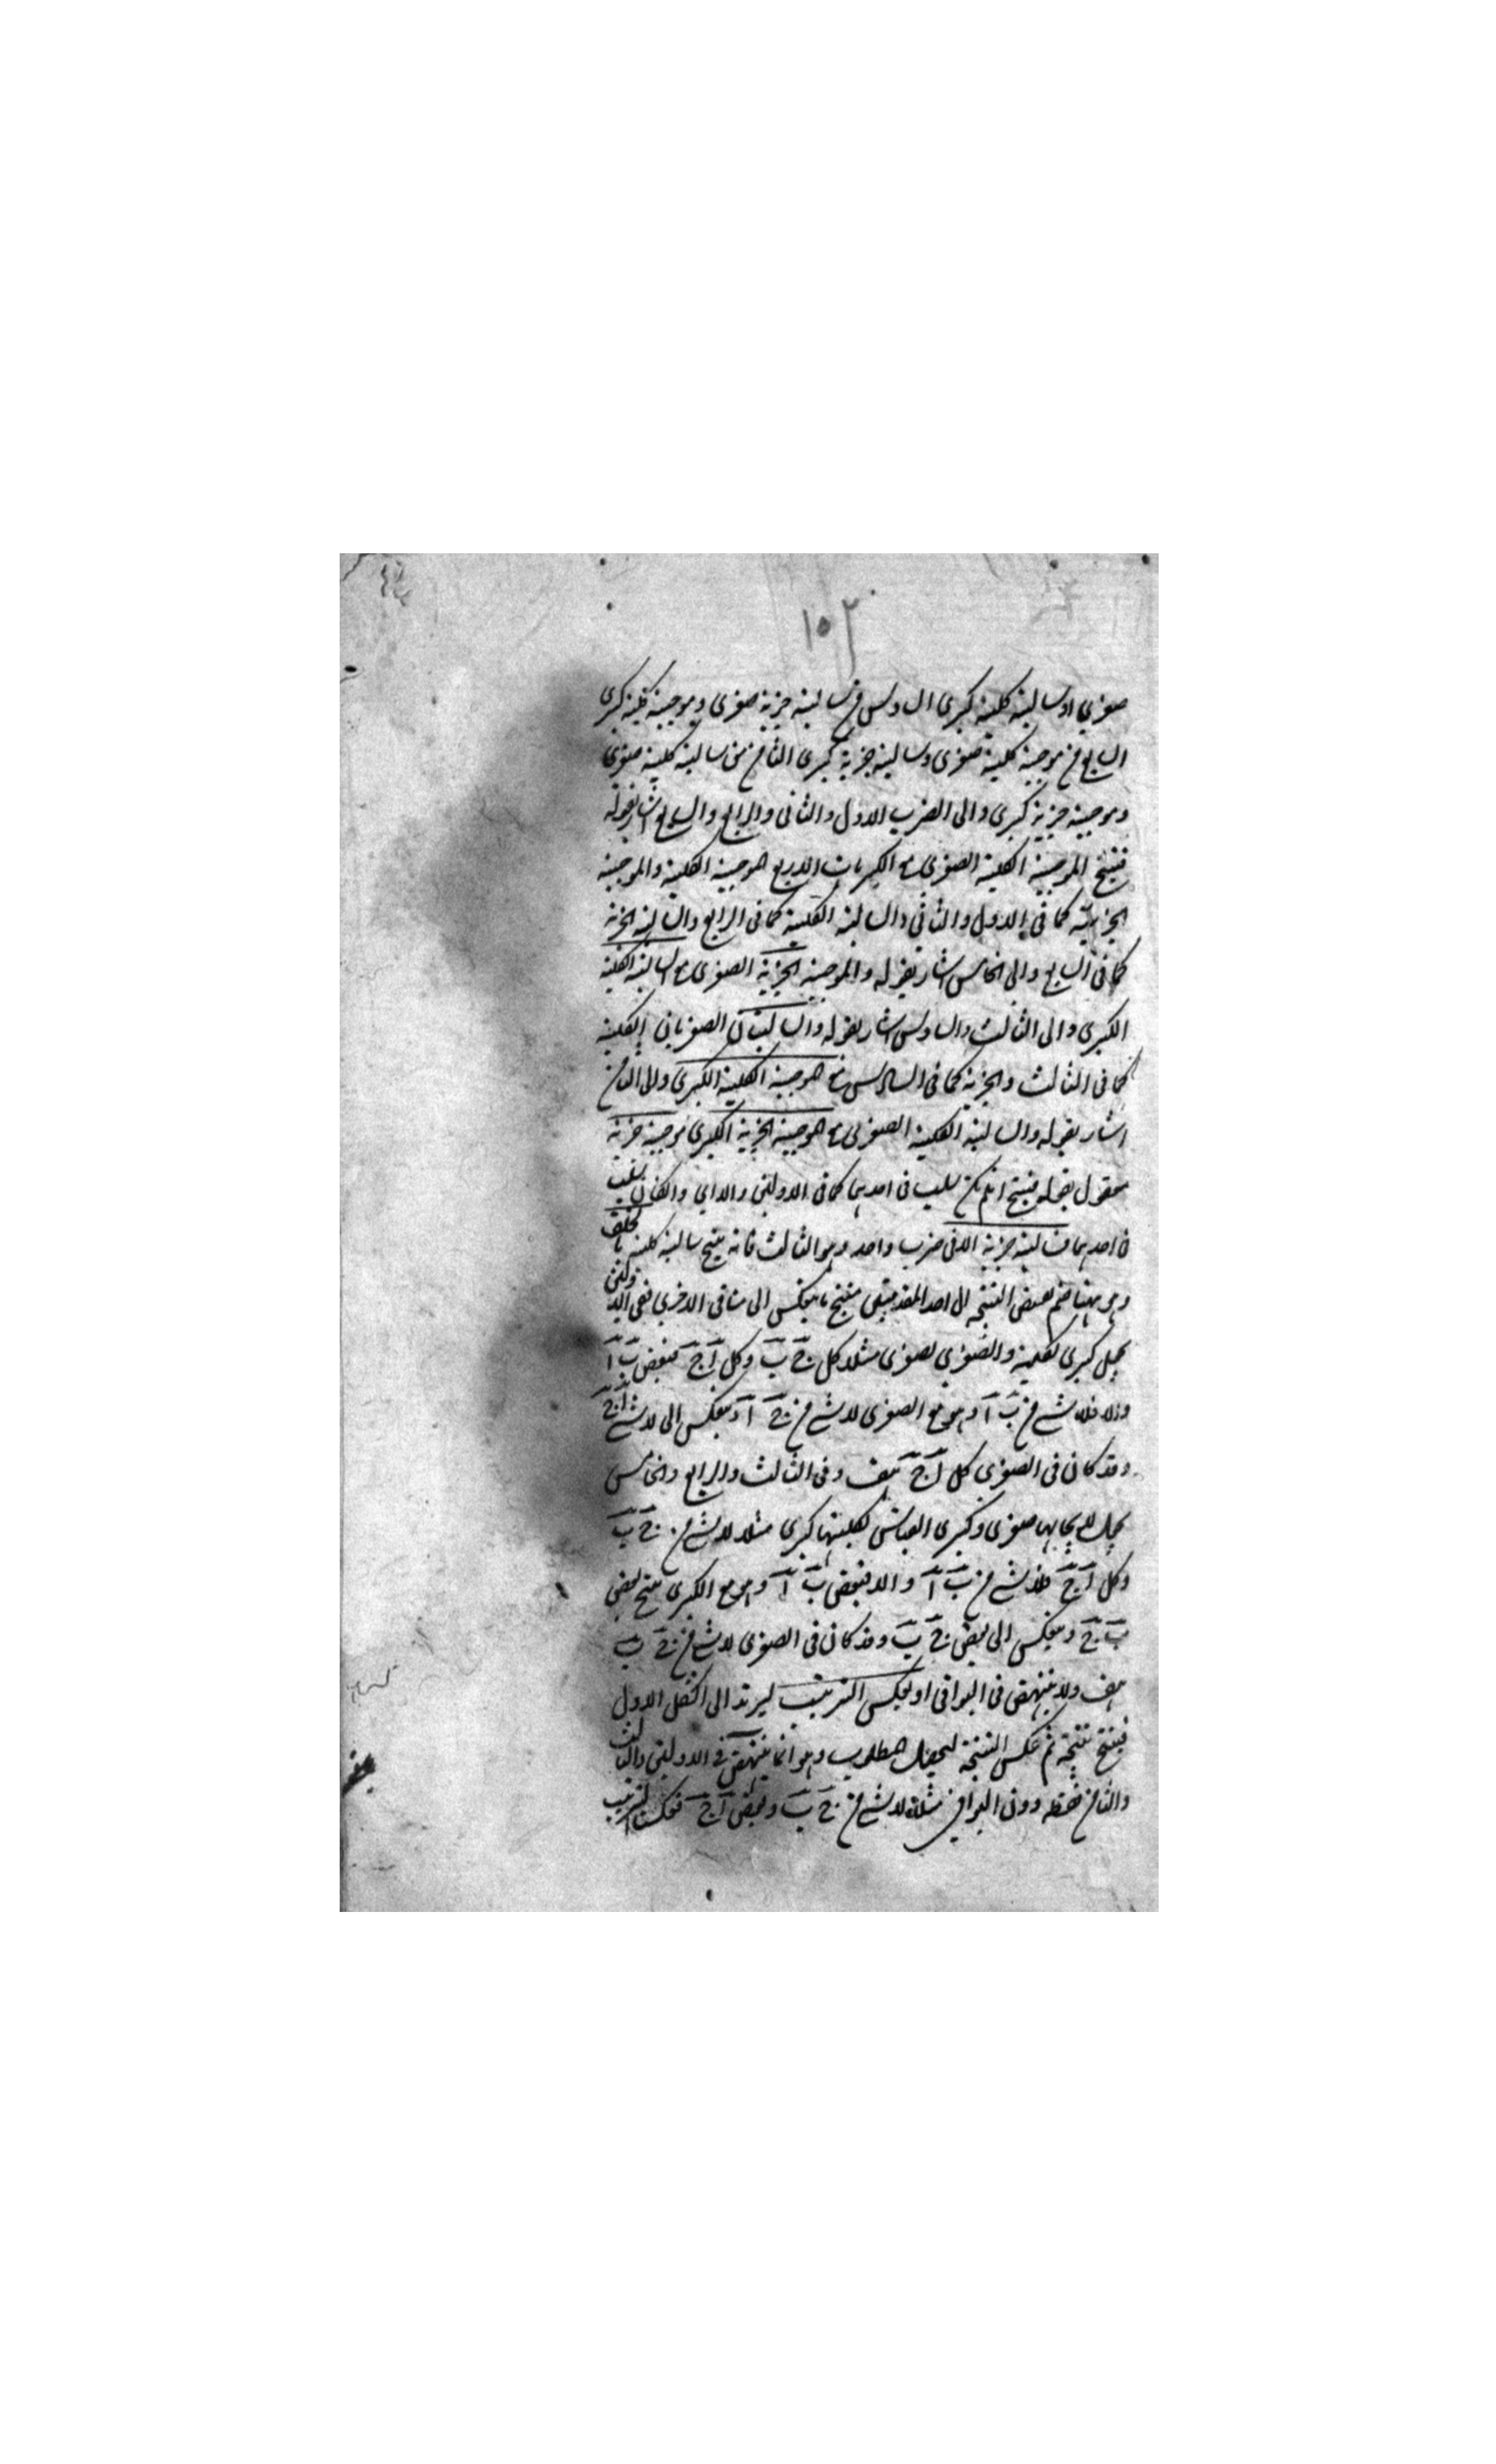 ١٥٢
صغرى او سالبة كلية كبرى السادس من سالبة جزئية صغرى وموجبة كلية كبرى
السابع من موجبة كلية صغرى وسالبة جزئية كبرى الثامن من سالبة كلية صغرى
وموجبة جزئية كبرى والى الضرب الاول والثانى والرابع والسابع اشار بقوله
فينتج الموجبة الكلية الصغرى مع الكبريات الاربع الموجبة الكلية والموجبة
الجزئية كما فى الاول والثانى والسالبة الكلية كما فى الرابع والسالبة الجزئية
كما فى السابع والى الخامس اشار بقوله والموجبة الجزئية الصغرى مع السالبة الكلية
الكبرى والى الثالث والسادس اشار بقوله والسالبتان الصغريان الكلية
كما فى الثالث والجزئية كما فى السادس مع الموجبة الكلية الكبرى والى الثامن
اشار بقوله والسالبة الكلية الصغرى مع الموجبة الجزئية الكبرى موجبة جزئية
مقول بقوله فينتج ان لم يكن سلب فى احديهما كما فى الاولين والا اى وان كان سلب
فى احديهما فسالبة جزئية الا فى ضرب واحد وهو الثالث فانه ينتج سالبة كلية بالخلف
وهو ههنا ضم نقيض النتيجة الى احد المقدمتين لينتج ما ينعكس الى منافى الاخرى ففى الاولين
يجعل كبرى لكليته والصغرى صغرى مثلا كل ج ب وكل ا ج فبعض ب ا
والا فلا شئ من ب ا وهو مع الصغرى لا شئ من ج ا وينعكس الى لا شئ من ا ج
وقد كان فى الصغرى كل ا ج هف وفى الثالث والرابع والخامس
يجعل لايجابها صغرى وكبرى القياس لكليتها كبرى مثلا لا شئ من ج ب
وكل ا ج فلا شئ من ب ا والا فبعض ب ا وهو مع الكبرى ينتج بعض
ب ج وينعكس الى بعض ج ب وقد كان فى الصغرى لا شئ من ج ب
هف ولا ينتهض فى البواقى او بعكس الترتيب ليرتد الى الشكل الاول
فينتج نتيجة ثم عكس النتيجة ليحصل المطلوب وهو انما ينتهض فى الاولين والثالث
والثامن فقط دون البواقى مثلا لا شئ من ج ب وبعض ا ج فعكسنا الترتيب